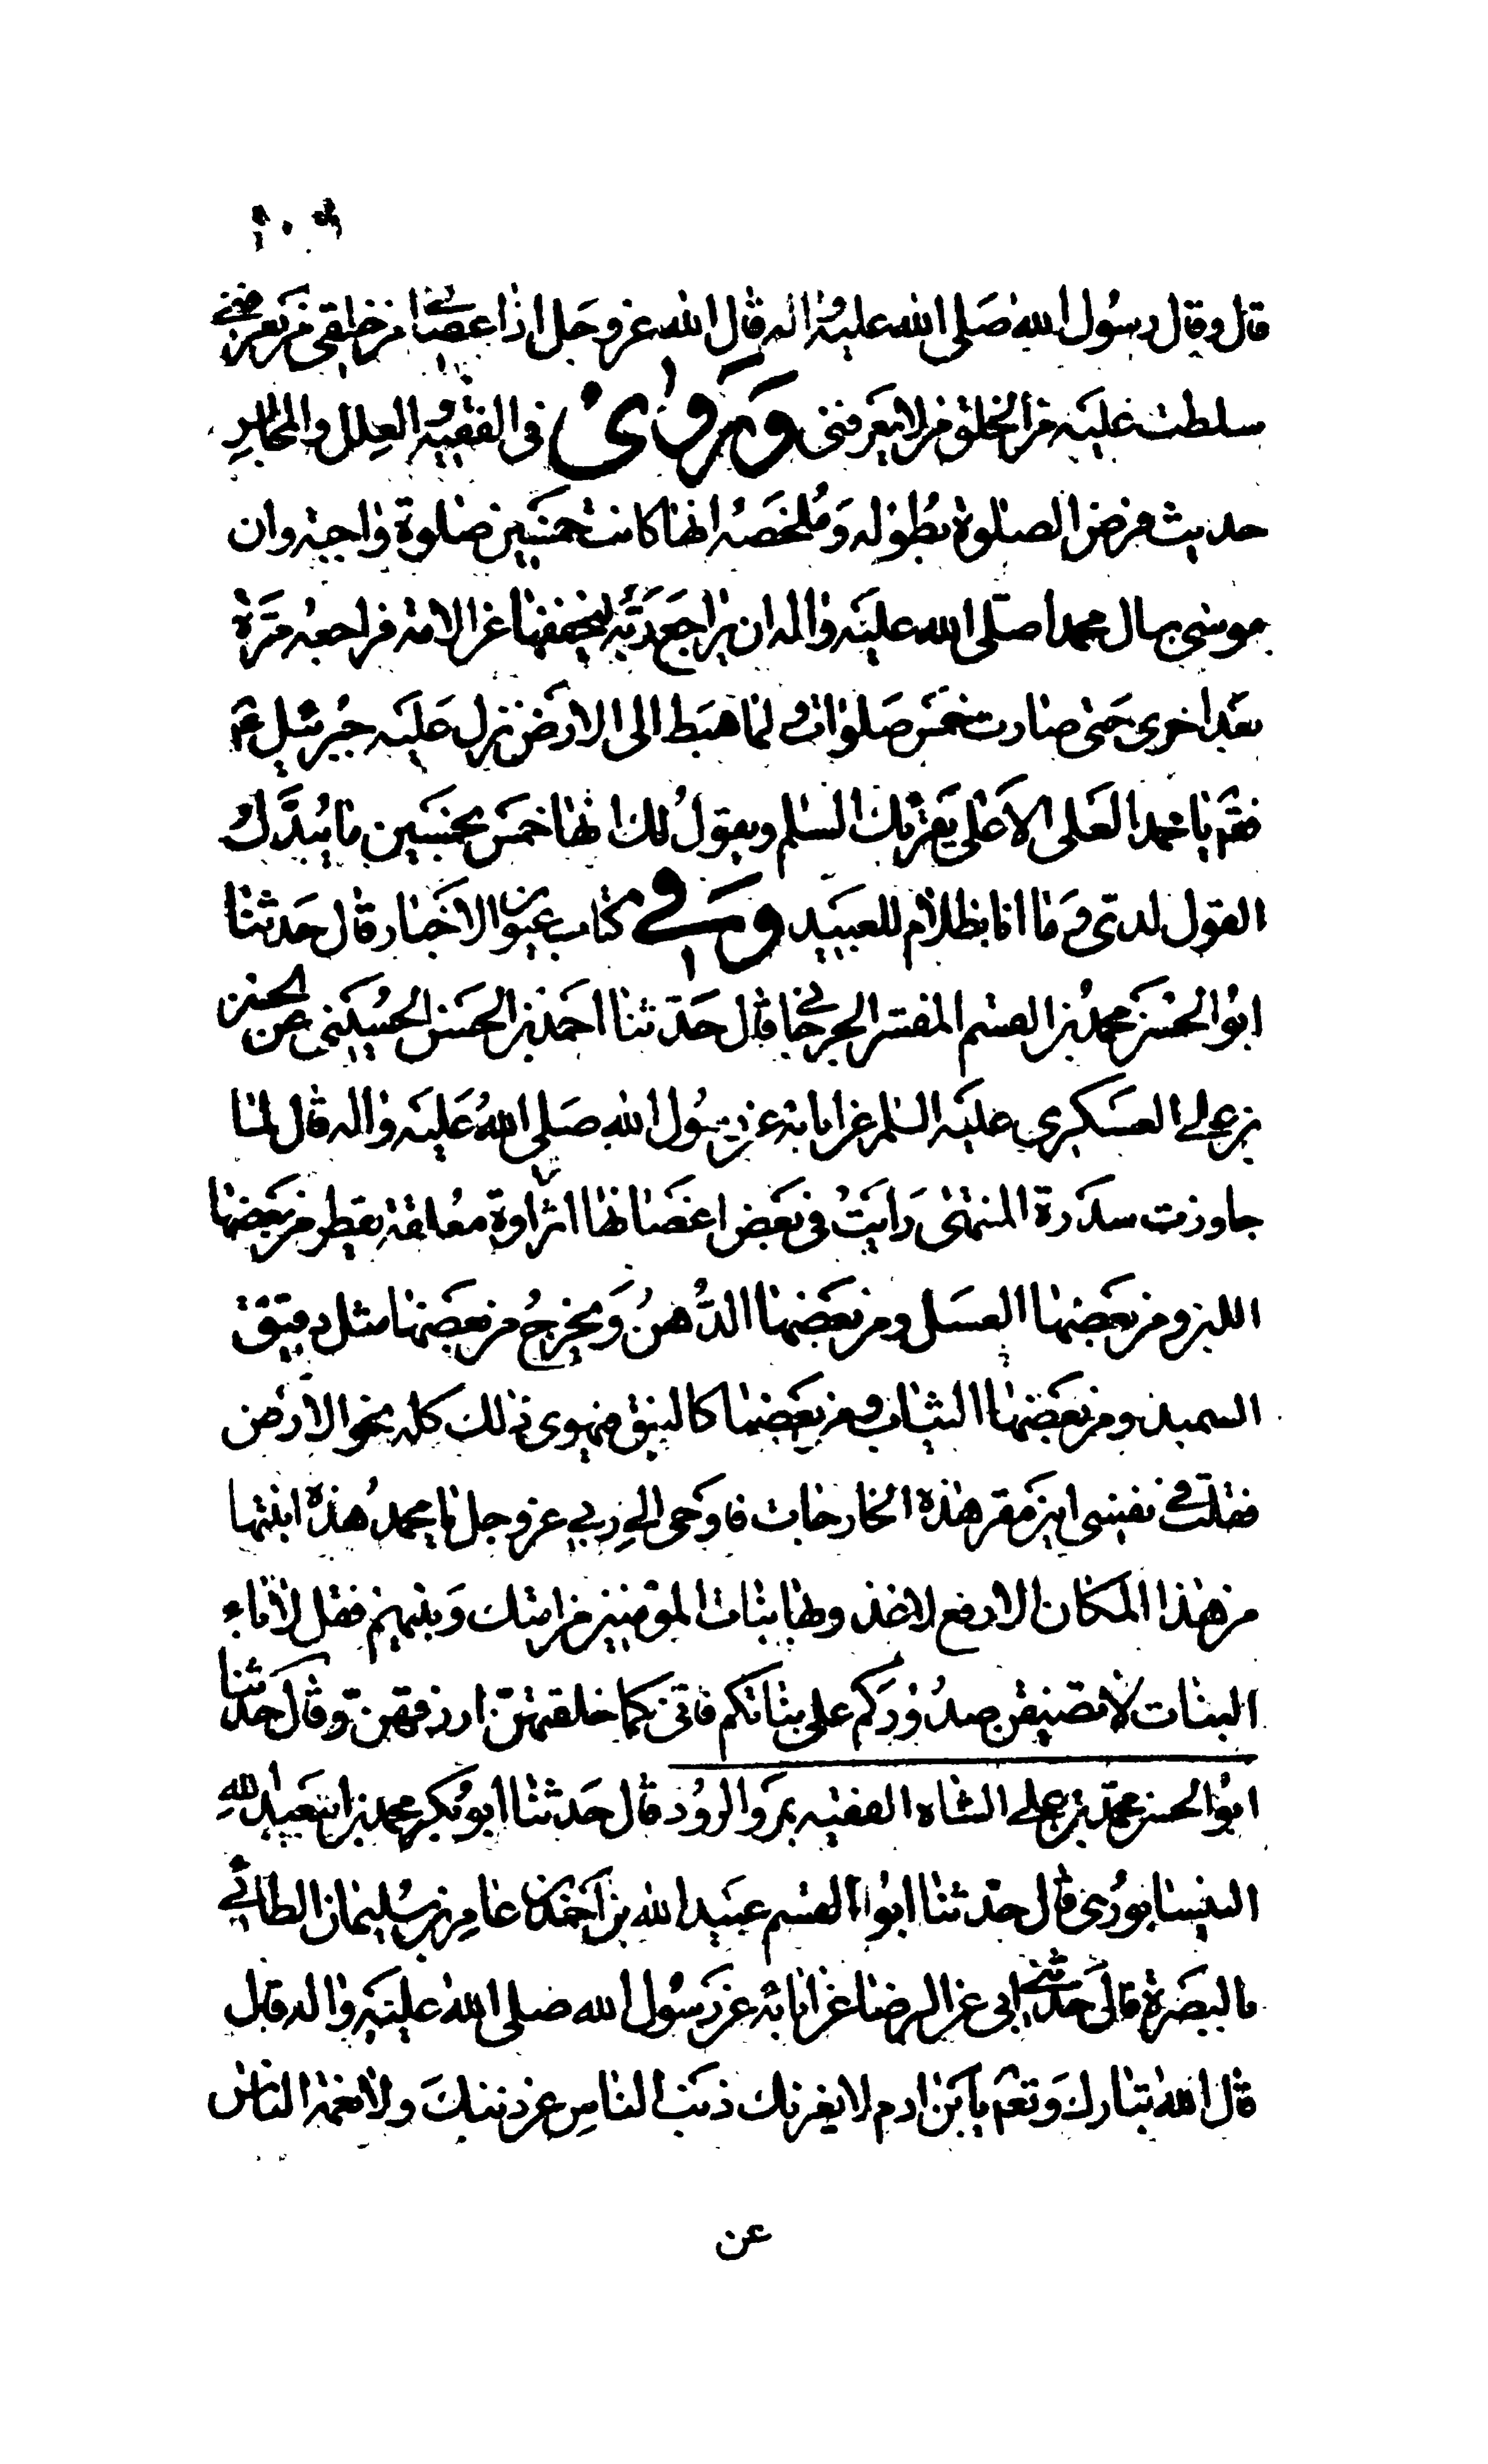 ١٠٩
قال وقال رسول الله صَلى الله عليه واله قال الله عزوجَل اذا عصَاني من خلقي من يعرفني
سلطت عليَه من الخلق من لا يَعرفنى وَرَوىٰ فى الفقيه والعِلل والمجالسِ
حديث فرض الصلوة بطوله وَمُلخصَه انها كانت خمسَين صلوة واجبة وان
موسى سال محمدا صلى الله عليَه واله ان يراجعَ رَبَّه ليخففها عن الامة فراجعه مَرّة
بعَد اخرى حَتى صارت خمسَ صَلوات و لما هبَط الى الارضَ نزل عَليَه جبرئيل ع
فقم يا محمد العَلى الاَعلى يَقرئك السلم ويقولُ لك انها خمسَ بخمسَين ما يُبَدَّل
القول لدى وَ ما انا بظلام للعبَيد وَفي كتاب عيون الاخَبار قال حَدثنا
ابوُ الحسَن محمد بن القسم المفسر الجرجاني قال حَدّثنا احمَد بن الحسَن الحسُيَني عن الحسن
بن علي العسَكري عليَه السلم عن ابائه عن رسُول الله صَلى اللهُ عَليَه واله قال لما
جاوزت سدَرة المنتهىٰ رَايَتُ فى بعَض اغصَانها اثداوة معُلقة يقطر من بعَضها
اللبن و من بعَضها العسَل ومن بعَضها الدُّهنُ وَيخرجُ من بعَضها مثل دقيق
السميد ومن بعَضها الثياب ومن بعَضها كالنبق فيهوى ذلك كله نحو الارَض
فقلت في نفسى اين مَقر هذه الخارجات فاوَحى الي ربي عزوجل يا محمدُ هذه انبتها
من هذا المكان الارفع لاغذو بها بنات المؤمنين من امتك وَبنيهم فقل لاٰباء
البنات لا تضيقن صدُورَكم على بناتكم فانى كما خلقتهنّ ارزقهن وقال حَدثنا
ابوُ الحسن محمّد بن علي الشاه الفقيه بمَروالروُد قال حَدثنا ابو بكر محمد بن عبَيد الله
النيسابورُى قال حدّثنا ابو القسم عبَيد الله بن احَمد بن عامر بن سُليمان الطائي
بالبصَرة قال حَدثني ابي عن الرضا عن ابائه عن رَسُول الله صلى الله عليَه واله قال
قال الله تبارك وَتعم يا بَن ادم لا يغرنك ذنَب الناسِ عن ذنبكَ ولا نعمة الناس
عن